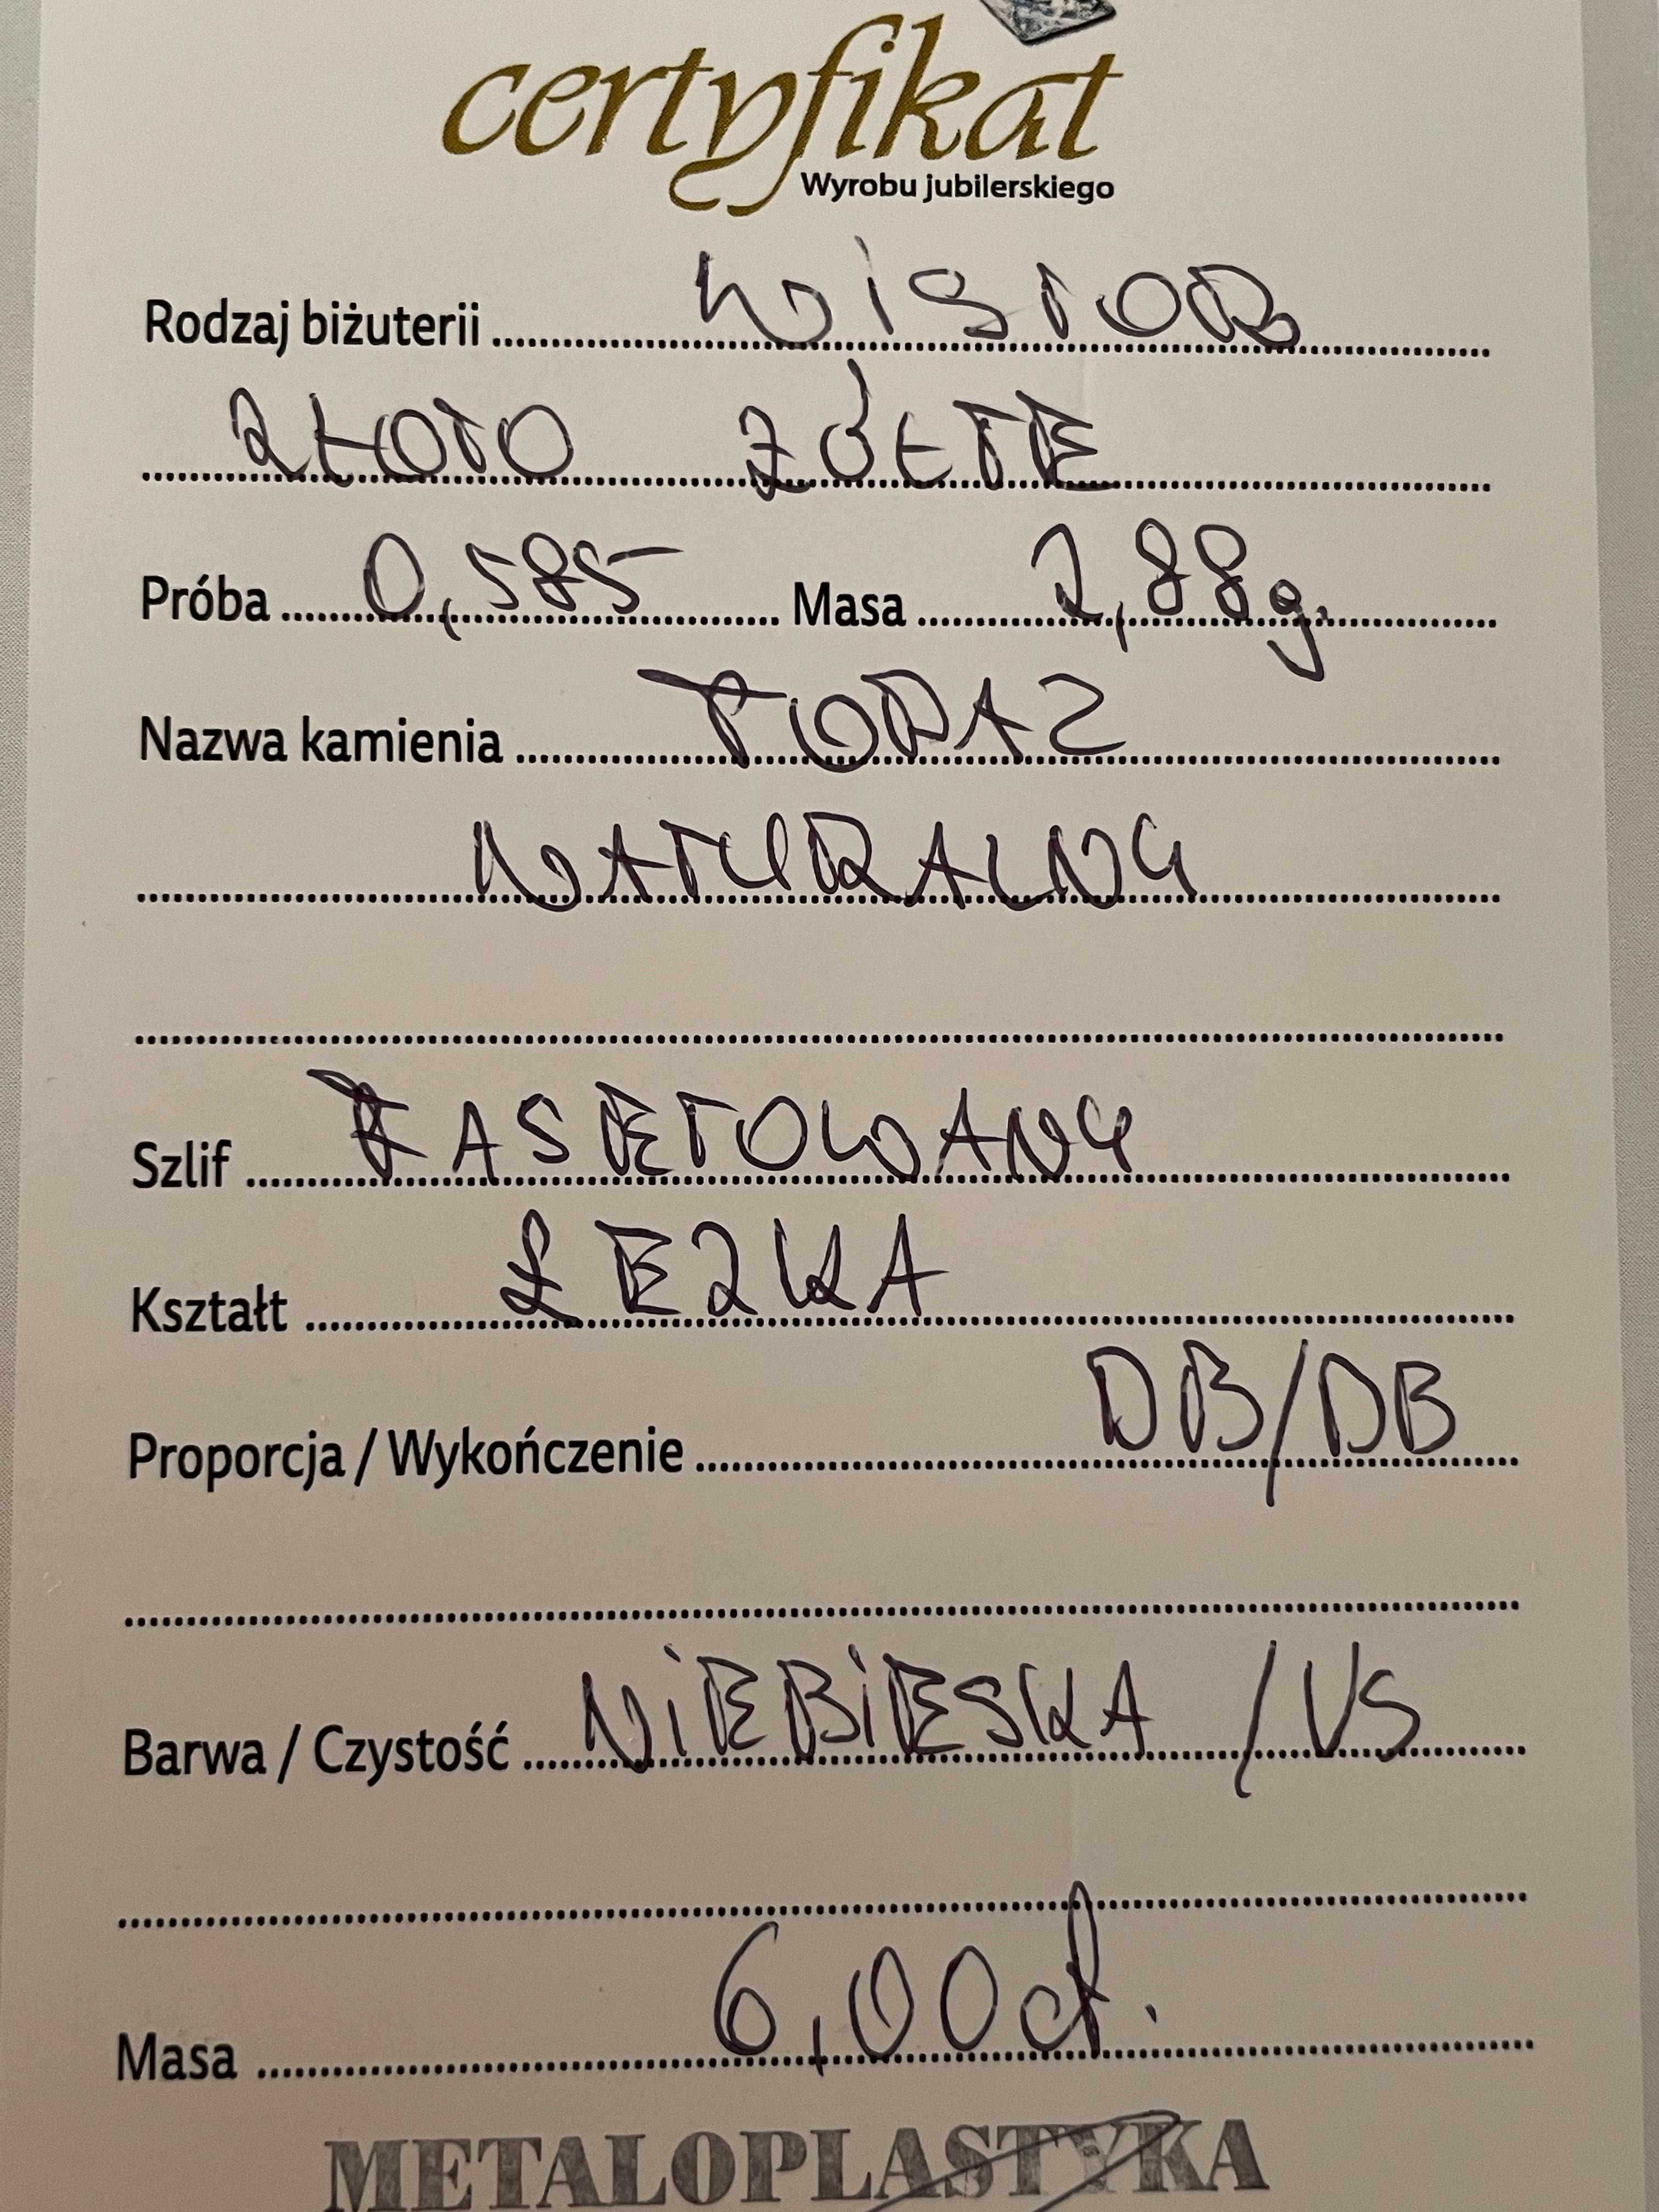 certyfikat
Wyrobu jubilerskiego
Rodzaj biżuterii WiSIOR
ZŁOTO ŻÓŁTE
Próba 0,585 Masa 2,88g.
Nazwa kamienia TOPAZ
NATURALNY
Szlif FASETOWANY
Kształt ŁEZKA
Proporcja / Wykończenie DB/DB
Barwa / Czystość NiEBiESKA /VS
Masa 6,00ct.
METALOPLASTYKA